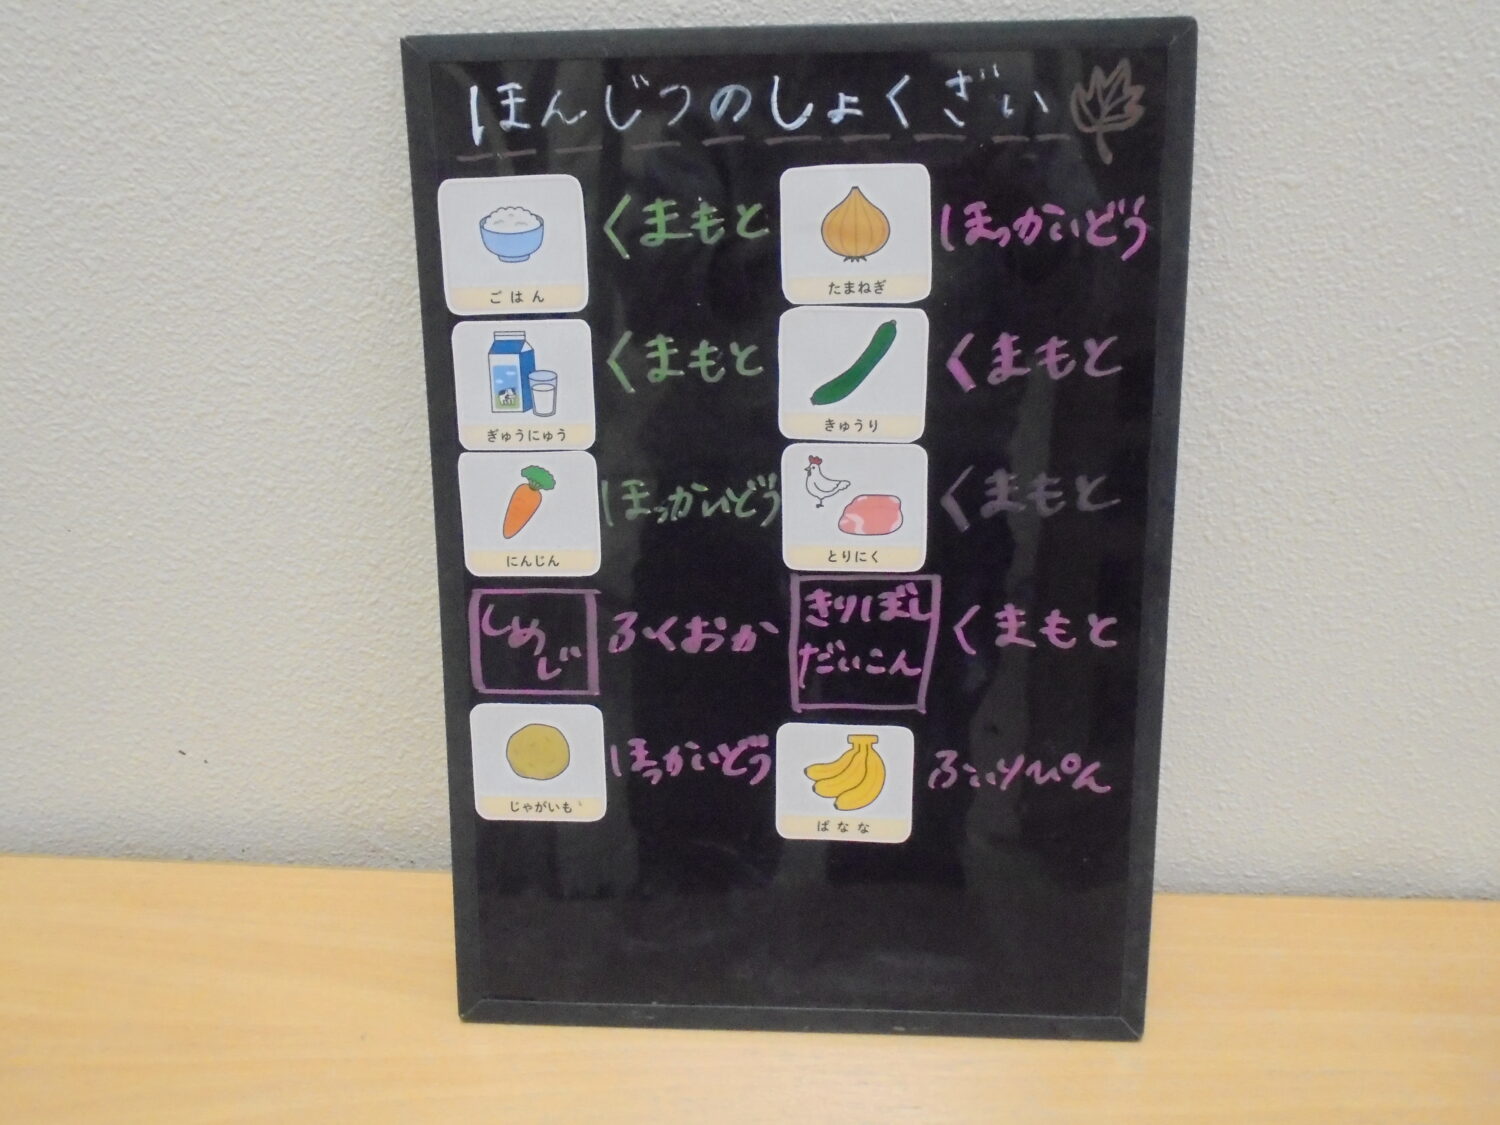 ほんじつのしょくざい
ごはん くまもと
たまねぎ ほっかいどう
ぎゅうにゅう くまもと
きゅうり くまもと
にんじん ほっかいどう
とりにく くまもと
しめじ ふくおか
きりぼしだいこん くまもと
じゃがいも ほっかいどう
ばなな ふぃりぴん